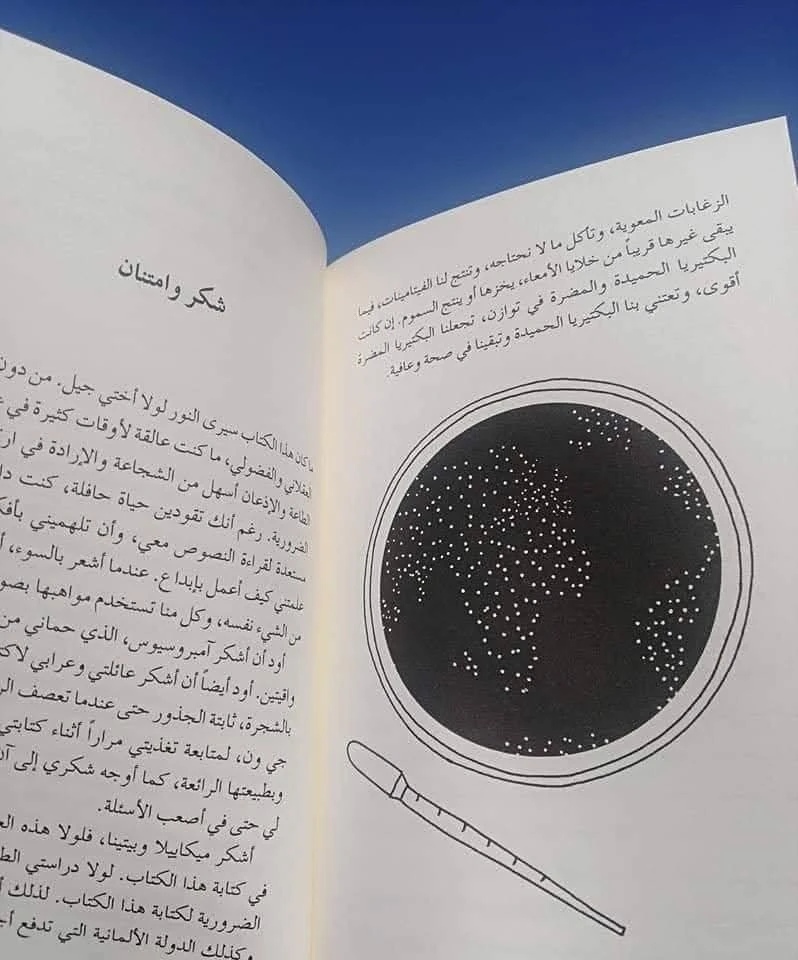 الزغابات المعوية، وتأكل ما لا نحتاجه، وتنتج لنا الفيتامينات، فيما
يبقى غيرها قريباً من خلايا الأمعاء، يخزها أو ينتج السموم. إن كانت
البكتيريا الحميدة والمضرة في توازن، تجعلنا البكتيريا المضرة
أقوى، وتعتني بنا البكتيريا الحميدة وتبقينا في صحة وعافية.
شكر وامتنان
ما كان هذا الكتاب سيرى النور لولا أختي جيل. من دون
العقلاني والفضولي، ما كنت عالقة لأوقات كثيرة في
الطاعة والإذعان أسهل من الشجاعة والإرادة في
الضرورية. رغم أنك تقودين حياة حافلة، كنت
مستعدة لقراءة النصوص معي، وأن تلهميني
علمتني كيف أعمل بإبداع. عندما أشعر بالسوء،
من الشيء نفسه، وكل منا تستخدم مواهبها
أود أن أشكر آمبروسيوس، الذي حماني من
واقيتين. أود أيضاً أن أشكر عائلتي وعرابي
بالشجرة، ثابتة الجذور حتى عندما تعصف
جي ون، لمتابعة تغذيتي مراراً أثناء كتابتي
وبطبيعتها الرائعة، كما أوجه شكري إلى
لي حتى في أصعب الأسئلة.
أشكر ميكاييلا وبيتينا، فلولا هذه
في كتابة هذا الكتاب. لولا دراستي
الضرورية لكتابة هذا الكتاب. لذلك
وكذلك الدولة الألمانية التي تدفع